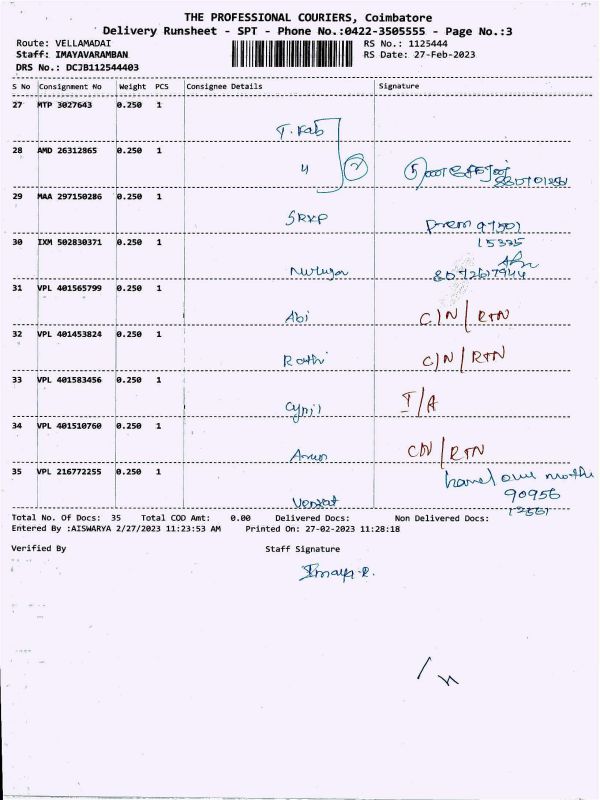 THE PROFESSIONAL COURIERS, Coimbatore
Delivery Runsheet - SPT - Phone No.:0422-3505555 - Page No.:3
Route: VELLAMADAI
RS No.: 1125444
Staff: IMAYAVARAMBAN
RS Date: 27-Feb-2023
DRS No.: DCJB112544403
S No Consignment No Weight PCS Consignee Details Signature
27 MTP 3027643 0.250 1
28 AMD 26312865 0.250 1
29 MAA 297150286 0.250 1
SRKP
Prem
15335
30 IXM 502830371 0.250 1
31 VPL 401565799 0.250 1
Abi C/N/RTN
32 VPL 401453824 0.250 1
Rathi C/N/RTN
33 VPL 401583456 0.250 1
I/A
34 VPL 401510760 0.250 1
CN/RTN
35 VPL 216772255 0.250 1
90956
Venkat
Total No. Of Docs: 35 Total COD Amt: 0.00 Delivered Docs: Non Delivered Docs:
Entered By :AISWARYA 2/27/2023 11:23:53 AM Printed On: 27-02-2023 11:28:18
Verified By Staff Signature